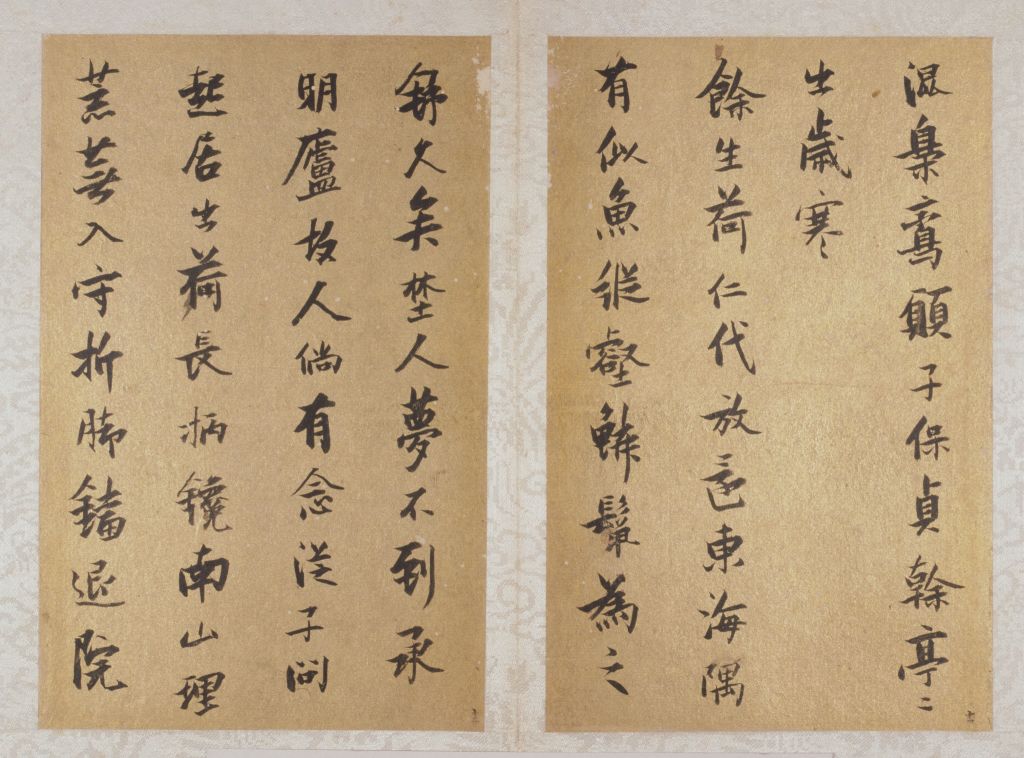 混梟鸞願子保貞幹亭〻
出歲寒
餘生荷仁代放意東海隅
有似魚縱壑鱗鬣為之
舒久矣埜人夢不到承
明廬故人倘有念從子問
起居出荷長柄鑱南山理
荒蕪入守折腳鐺退院